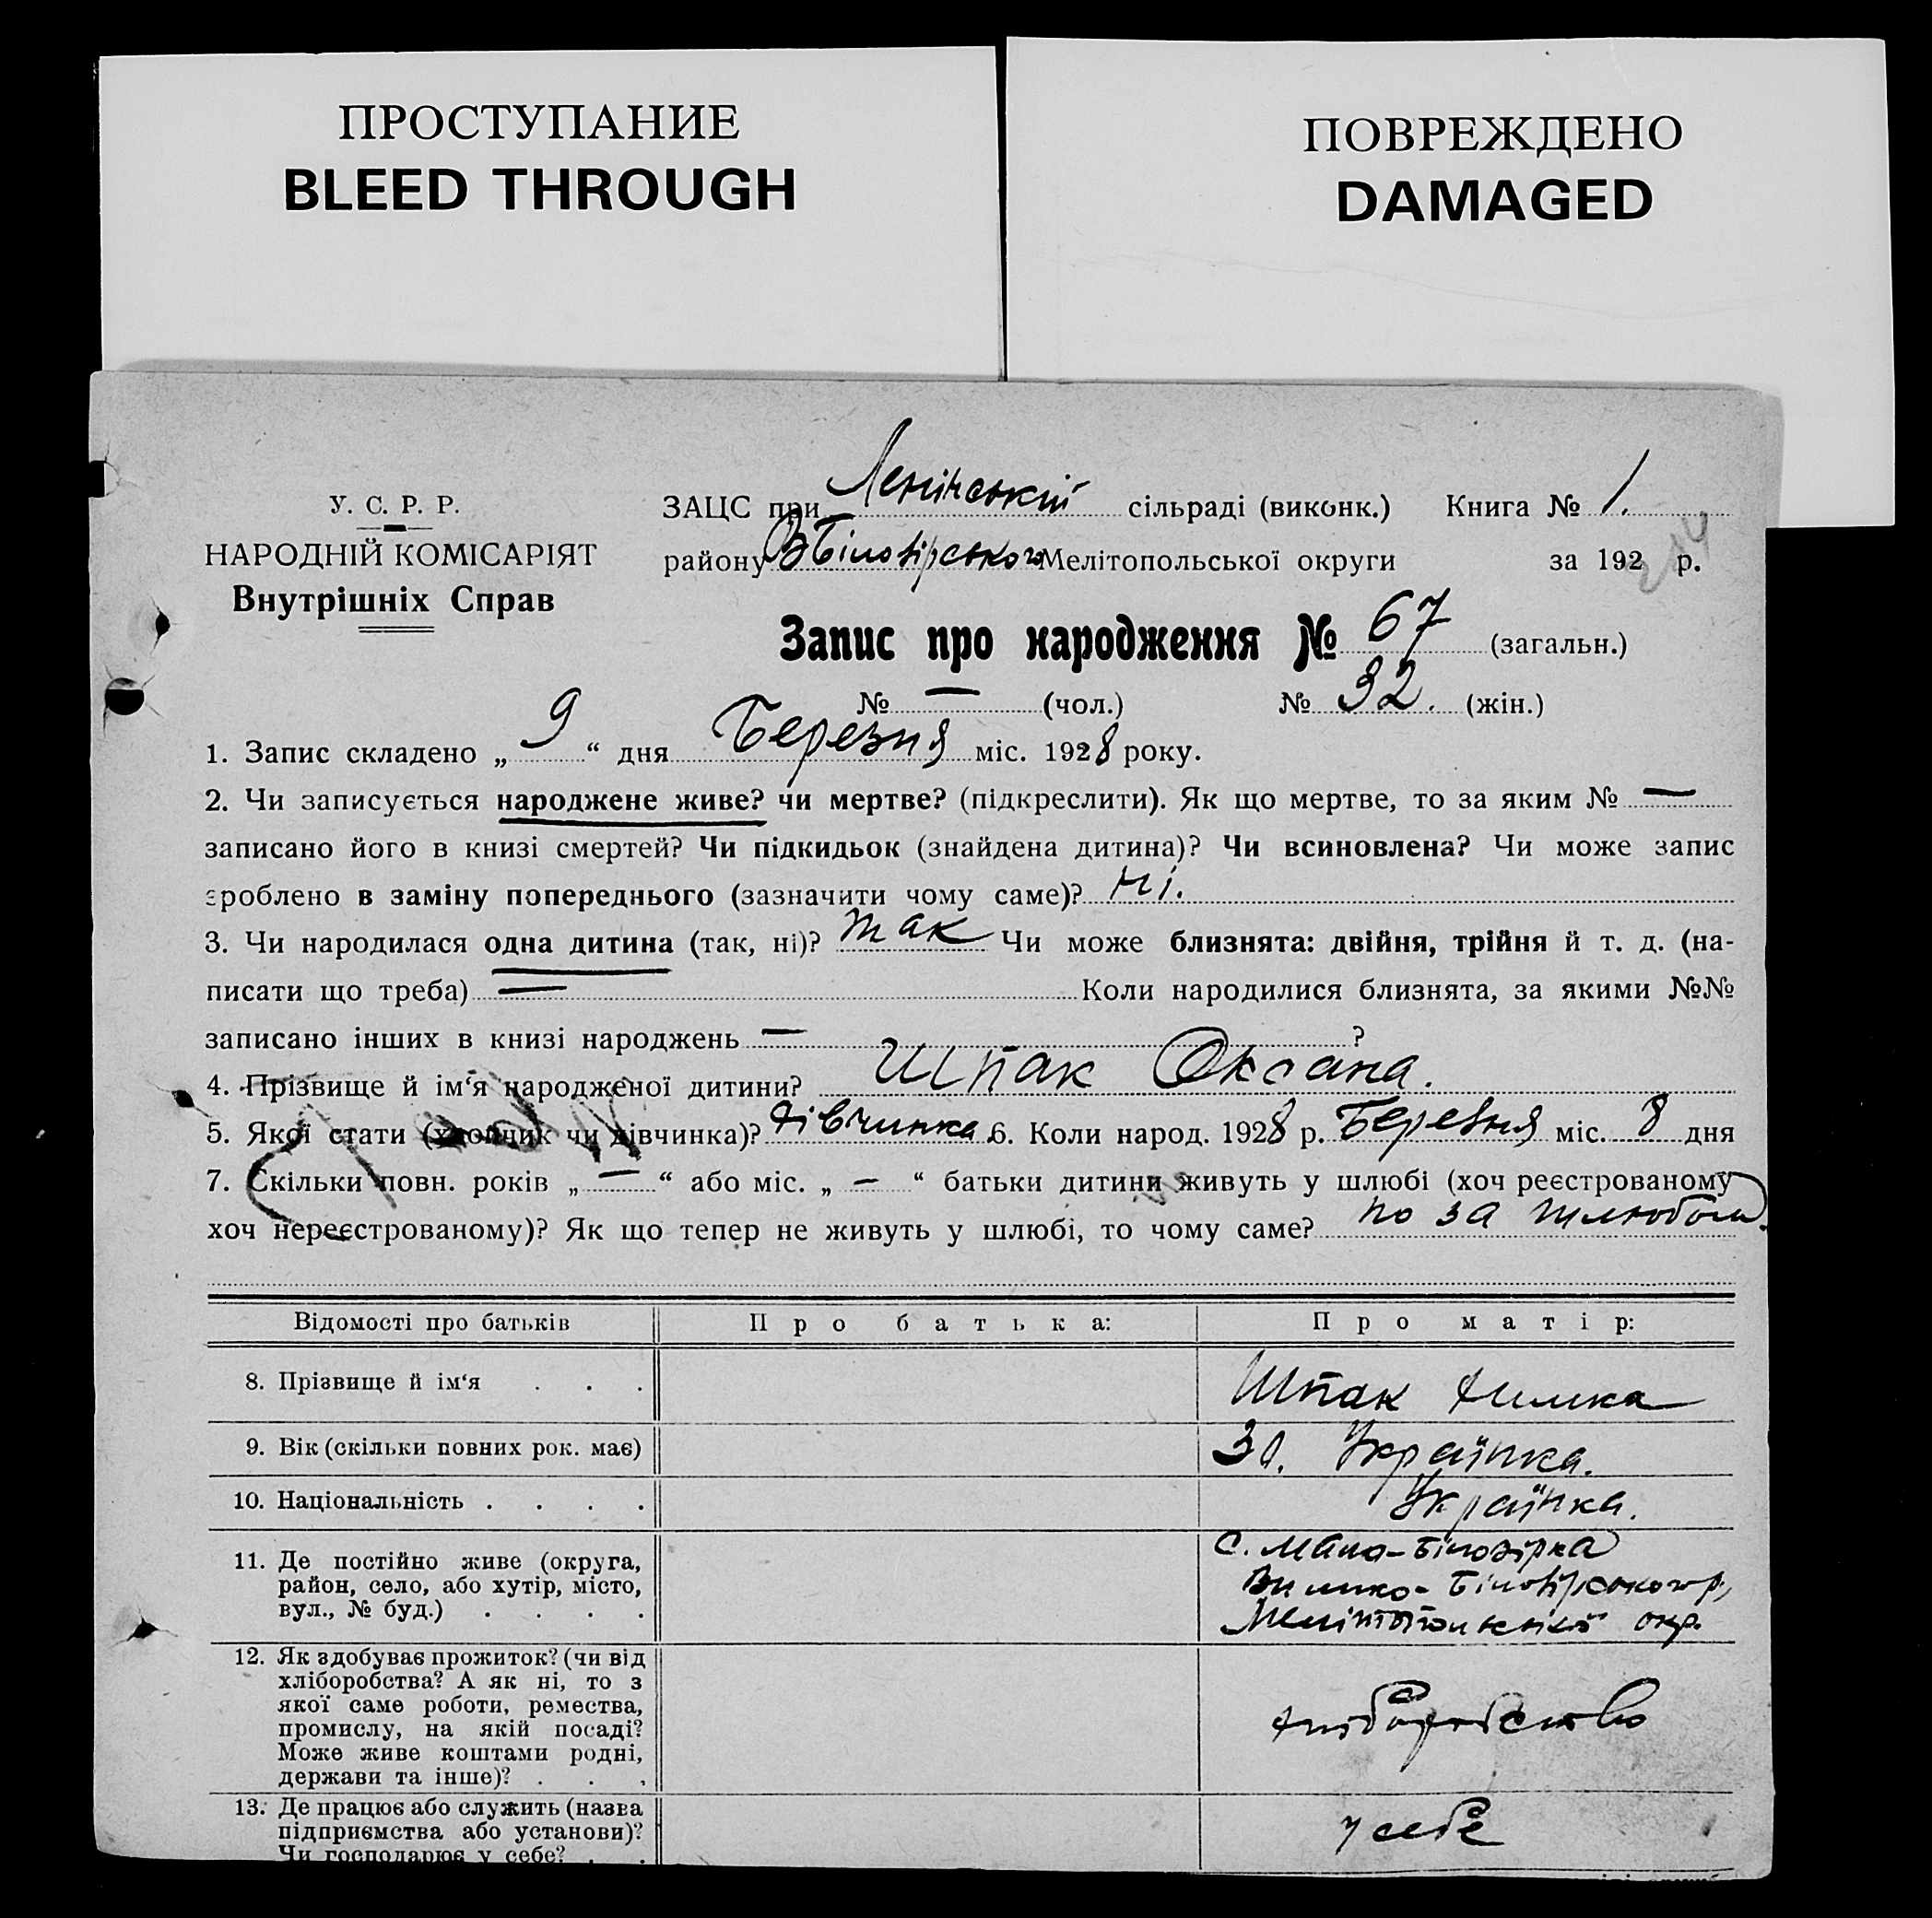 ПРОСТУПАНИЕ
BLEED THROUGH
ПОВРЕЖДЕНО
DAMAGED
У. С. Р. Р.
НАРОДНІЙ КОМІСАРІЯТ
Внутрішніх Справ
ЗАЦС при Ленінській сільраді (виконк.) Книга № 1.
району ВБілозірського Мелітопольської округи за 192 р.
Запис про народження № 67 (загальн.)
№ — (чол.) № 32. (жін.)
1. Запис складено „ 9 “ дня Березня міс. 1928 року.
2. Чи записується народжене живе? чи мертве? (підкреслити). Як що мертве, то за яким № —
записано його в книзі смертей? Чи підкидьок (знайдена дитина)? Чи всиновлена? Чи може запис
зроблено в заміну попереднього (зазначити чому саме)? Ні.
3. Чи народилася одна дитина (так, ні)? так Чи може близнята: двійня, трійня й т. д. (на-
писати що треба) — Коли народилися близнята, за якими №№
записано інших в книзі народжень — ?
4. Прізвище й ім‘я народженої дитини? Шпак Оксана.
5. Якої стати (хлопчик чи дівчинка)? дівчинка 6. Коли народ. 1928 р. Березня міс. 8 дня
7. Скільки повн. років „ — “ або міс. „ — “ батьки дитини живуть у шлюбі (хоч реєстрованому
хоч нереєстрованому)? Як що тепер не живуть у шлюбі, то чому саме? по за шлюбом.
Відомості про батьків
Про батька:
Про матір:
8. Прізвище й ім‘я . . .
Шпак
9. Вік (скільки повних рок. має)
30. Українка.
10. Національність . . . .
Українка.
11. Де постійно живе (округа,
район, село, або хутір, місто,
вул., № буд.) . . . .
с. Мало-Білозірка
Велико-Білозірського р,
Мелітопольської окр.
12. Як здобуває прожиток? (чи від
хліборобства? А як ні, то з
якої саме роботи, ремества,
промислу, на якій посаді?
Може живе коштами родні,
держави та інше)? . . .
хліборобство
13. Де працює або служить (назва
підприємства або установи)?
Чи господарює у себе? . .
у себе